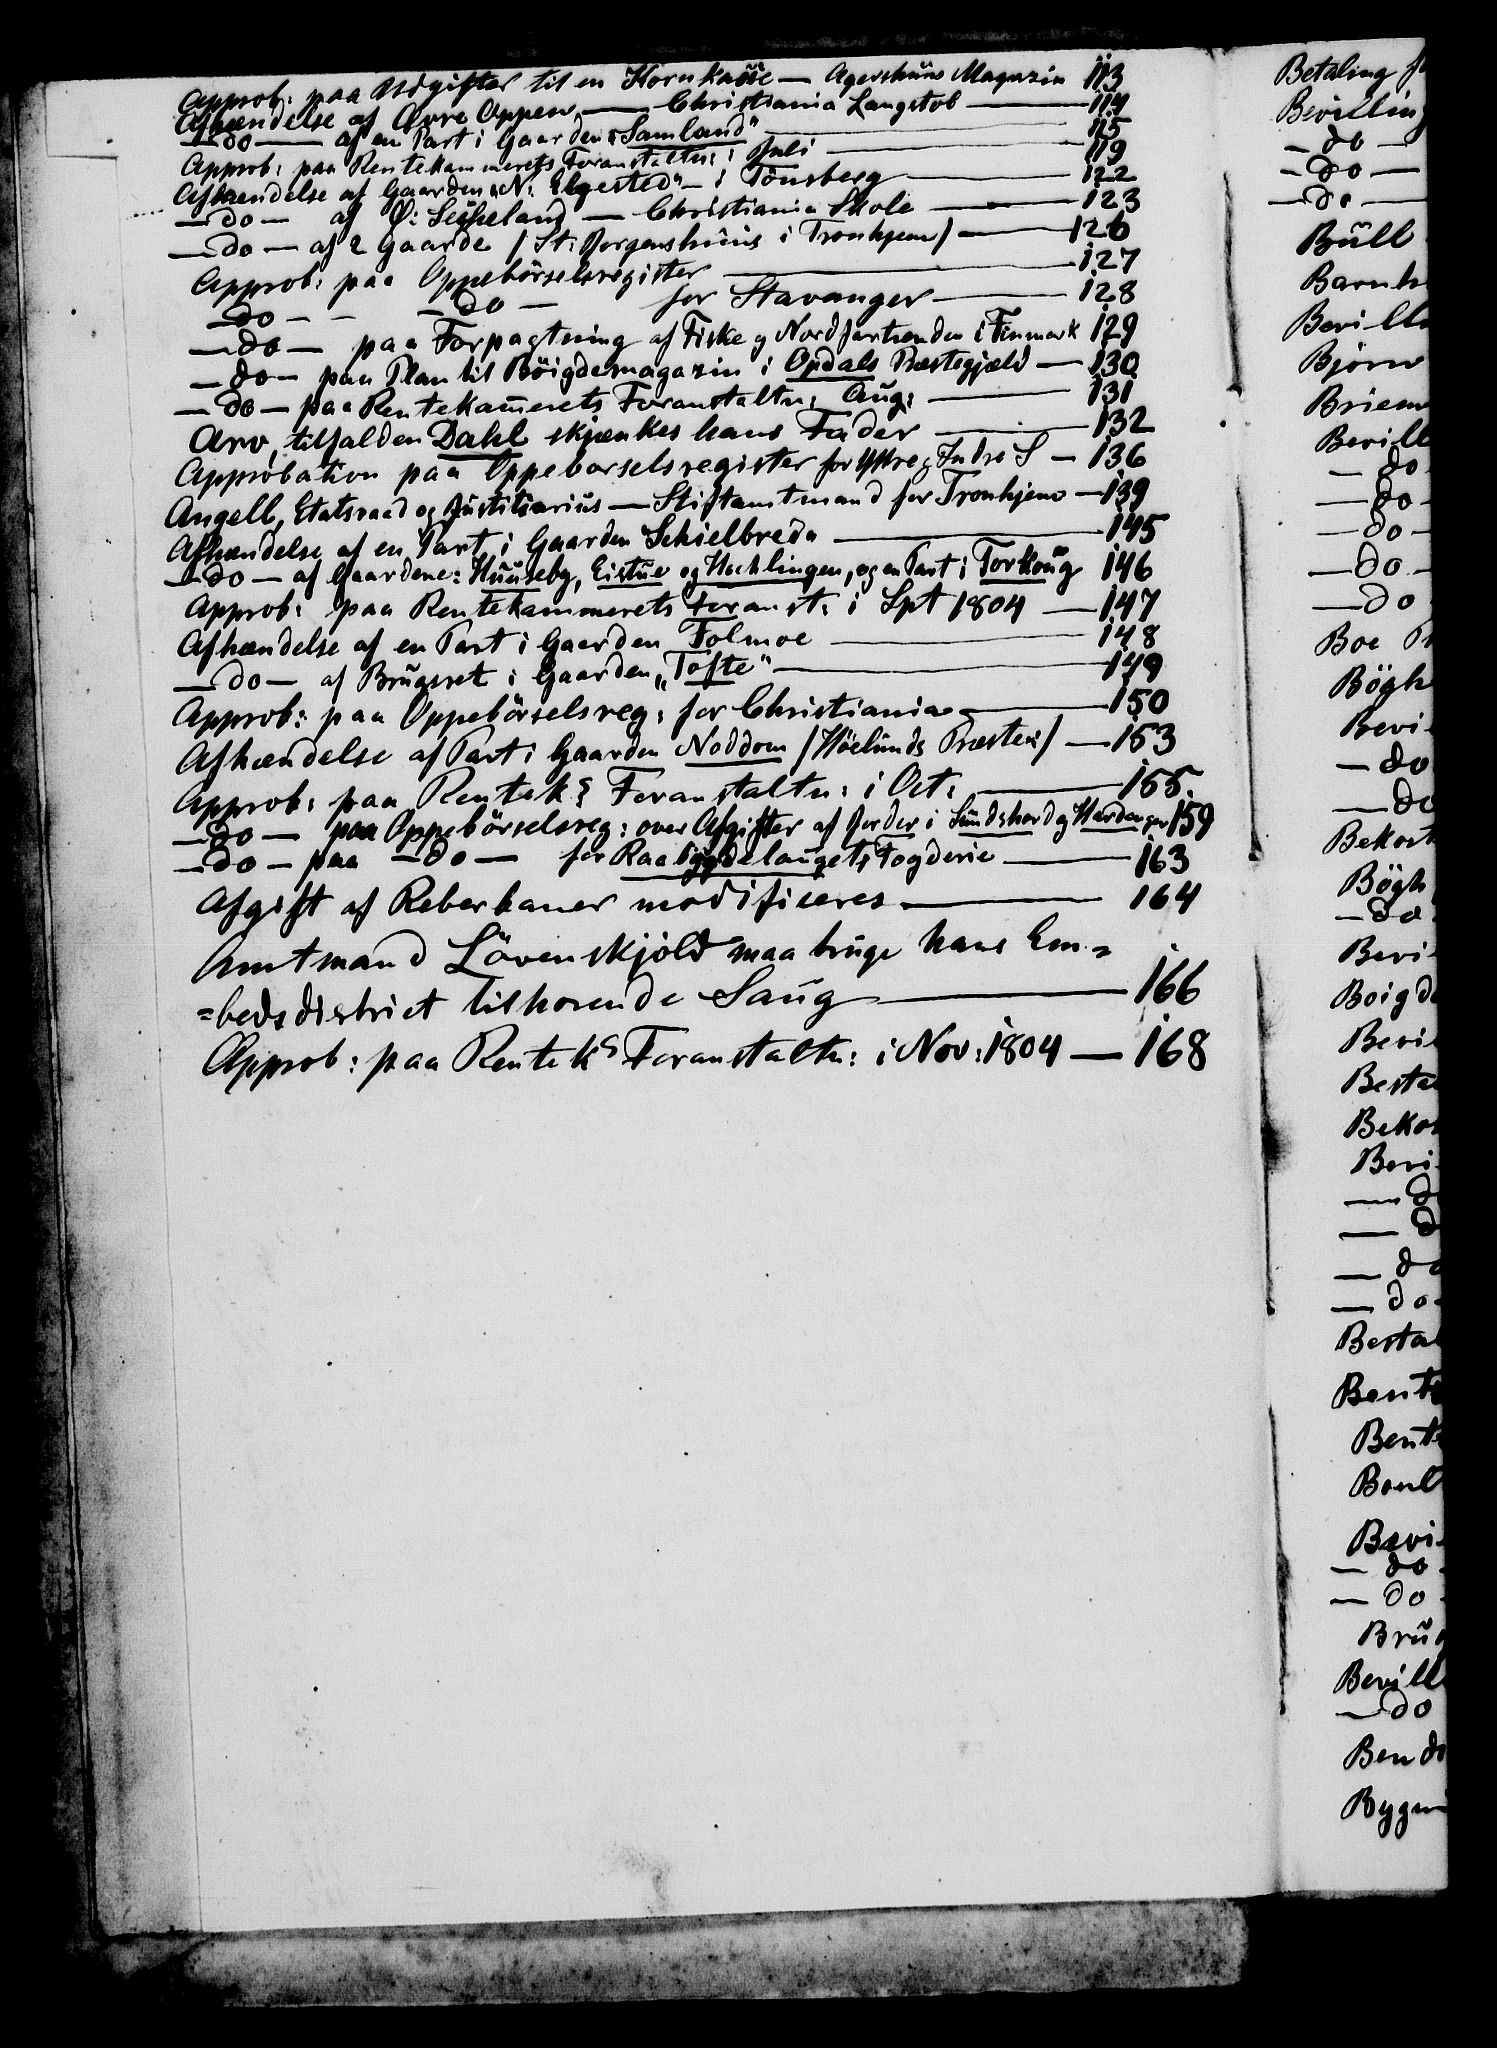 Approb: paa Udgifter til en Kornkasse — Agershuus Magazin 113
Afhændelse af Øvre Oppen — Christiania Langstob — 114
— do — af en Part i Gaarden „Samland" — 115
Approb: paa Rentekammerets Foranstaltn: i Juli — 119
Afhændelse af Gaarden „N: Elgested" — i Tönsberg — 122
— do — af Ø: — Christiania Skole — 123
— do — af 2 Gaarde / St: Jørgenshuus i Tronhjem / — 126
Approb: paa Oppebörselsregister — 127
— do — — do — for Stavanger — 128
— do — paa Forpagtning af Fiske og Nordfartienden i Finmark 129
— do — paa Plan til Böigdemagazin i Opdals Præstegjæld — 130
— do — paa Rentekamerets Foranstaltn: Aug: — 131
Arv, tilfalden Dahl skjænkes hans Fader — 132
Approbation paa Oppeborselsregister for Ytre og Indre S — 136
Angell, Etatsraad og Justitiarius — Stiftamtmand for Tronhjem — 139
Afhændelse af en Part i Gaarden Schielbreda — 145
— do — af Gaardene: Huuseby, Eistue og Hochlingen, og en Part i Torkoug 146
Approb: paa Rentekammerets Foranst: i Spt 1804 — 147
Afhændelse af en Part i Gaarden Folmoe — 148
— do — af Brugsret i Gaarden „Tofte" — 149
Approb: paa Oppebörselsreg: for Christiania — 150
Afhændelse af Part i Gaarden Noddom / Höelunds Præstei / — 153
Approb: paa Rentek: Foranstaltn: i Oct: — 155.
— do — paa Oppebörselsreg: over Afgifter af Jorder i Sundshord og Hardanger 159
— do — paa — do — for Raabygdelaugets Fogderie — 163
Afgift af Reberbaner modificeres — 164
Amtmand Lövenskjold maa bruge hans Em=
=bedsdistrict tilhorende Saug — 166
Approb: paa Renteks Foranstaltn: i Nov: 1804 — 168
Betaling
Bevilling
— do —
— do —
— do —
Büll
Barnh
Bevill
Björn
Briem
Bevill
— do
— do
— do
— do —
— do
Boe
Bögh
Bevi
— do
— do
Bekost
Bögh
— do
Bevi
Boigd
Bevi
Besta
Bekos
Bevi
— d
— d
— do
— do
Bestal
Bent
Bent
Bevi
— do
— do
Brug
Bevill
— do
Bend
Bygn